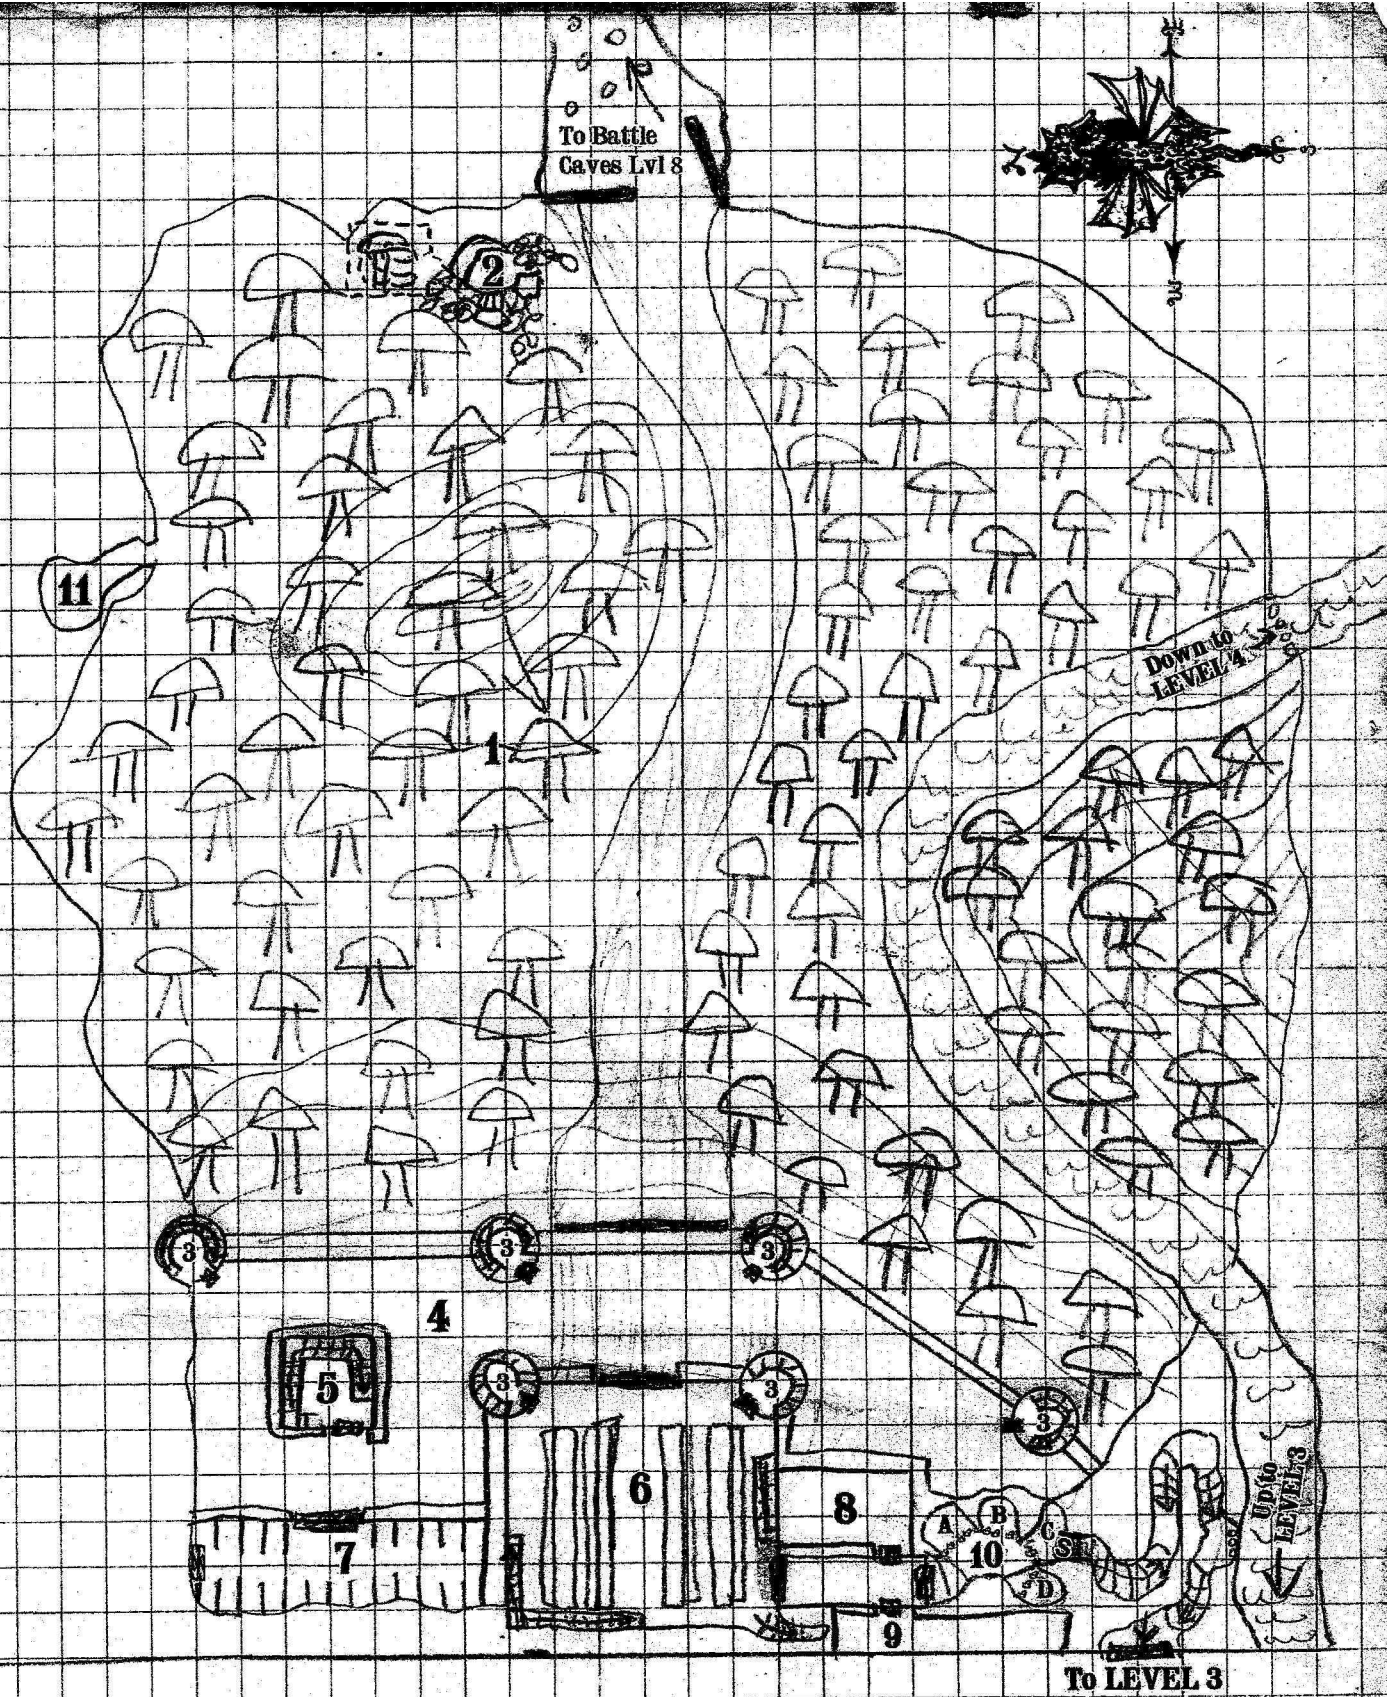 To Battle
Caves Lvl 8
2
11
Down to
LEVEL 4
1
3
3
3
4
5
3
3
3
6
8
7
A
B
C
10
S
D
9
Up to
LEVEL 3
To LEVEL 3